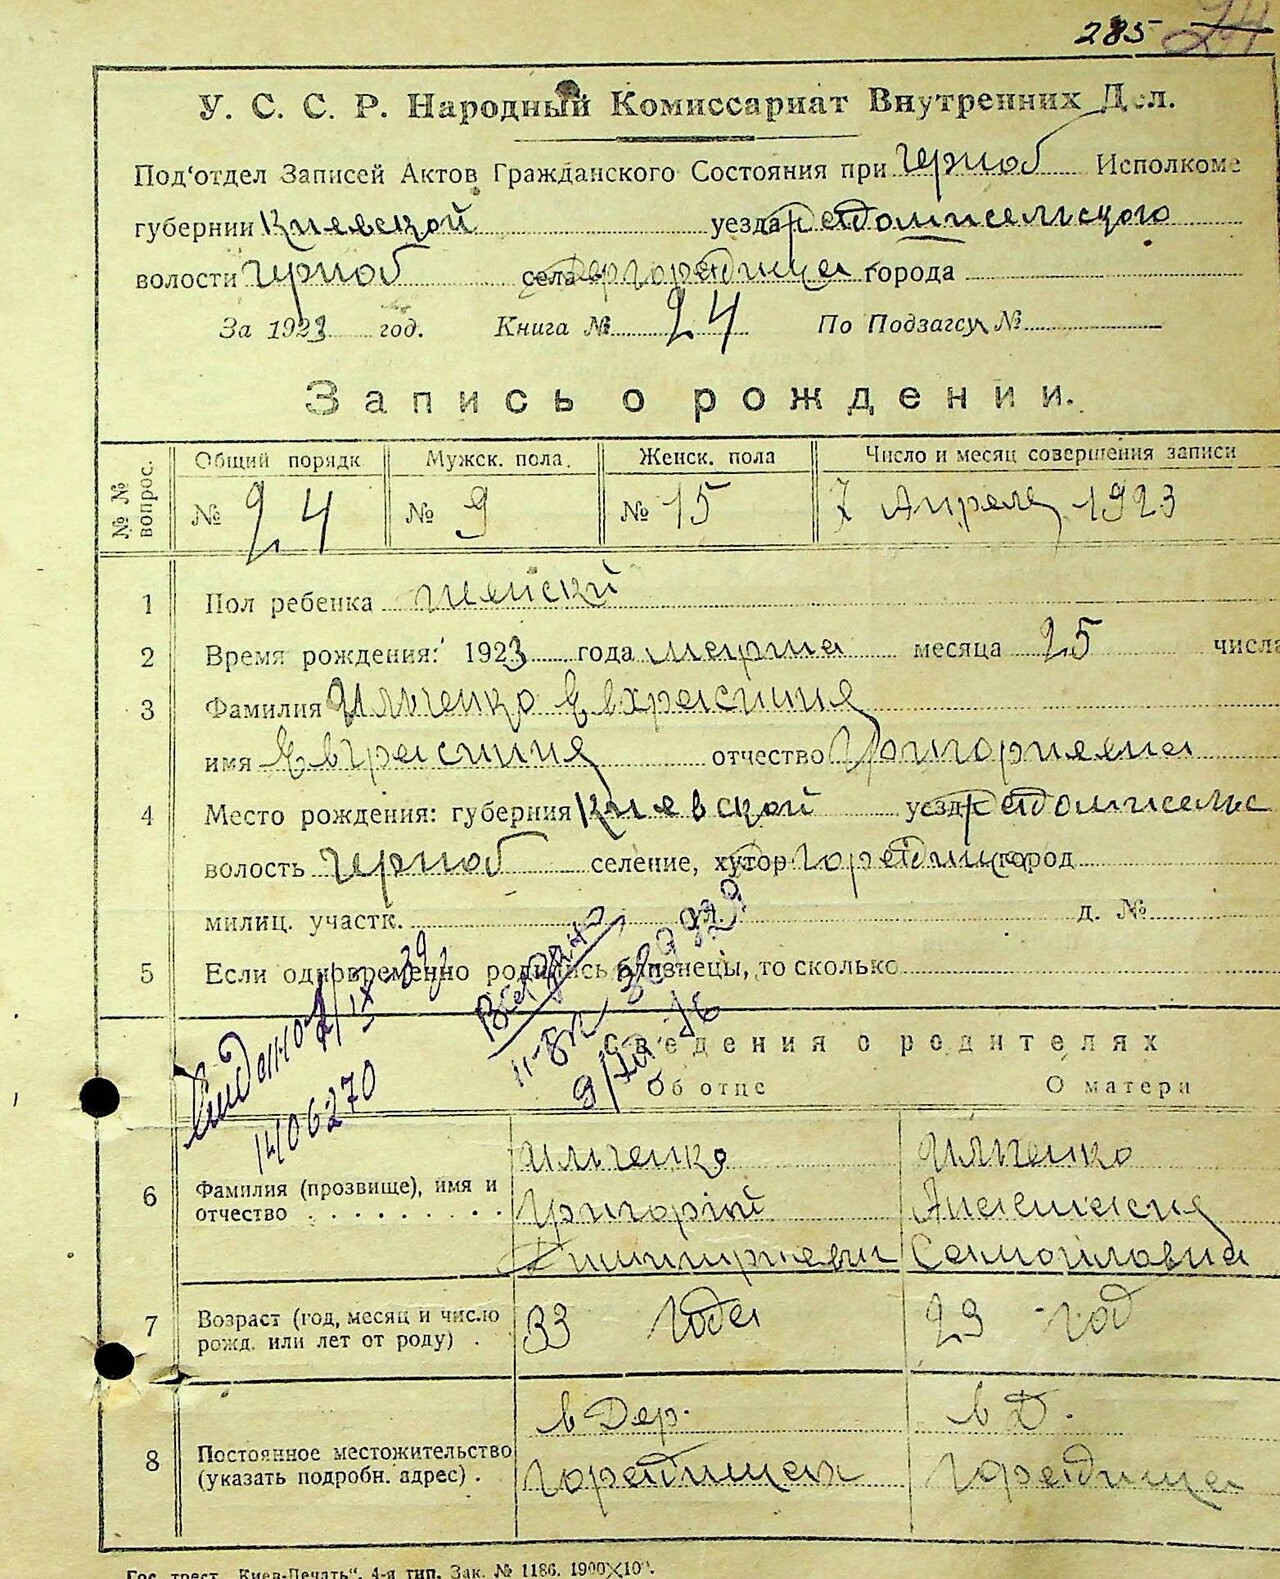 285 24
У. С. С. Р. Народный Комиссариат Внутренних Дел.
Под'отдел Записей Актов Гражданского Состояния при Черноб Исполкоме
губернии Киевской уезда Радомисельского
волости Черноб села города
За 1923 год. Книга № 24 По Подзагсу №
Запись о рождении.
№ № вопрос. Общий порядк Мужск. пола. Женск. пола Число и месяц совершения записи
№ 24 № 9 № 15 7 Апреля 1923
1 Пол ребенка женский
2 Время рождения: 1923 года марта месяца 25 числа
3 Фамилия Ильченко
имя отчество
4 Место рождения: губерния Киевской уезд Радомисельс
волость Черноб селение, хутор город
милиц. участк. ул. д. №
5 Если одновременно родились близнецы, то сколько
Сведения о родителях
Об отце О матери
1406270
6 Фамилия (прозвище), имя и отчество Ильченко Ильченко
Григорій
Самойловна
7 Возраст (год, месяц и число рожд. или лет от роду) . 33 года 29 год
8 Постоянное местожительство (указать подробн. адрес) . в Дер. в Д.
Гос. трест „Киев-Печать“, 4-я тип, Зак. № 1186. 1900×10